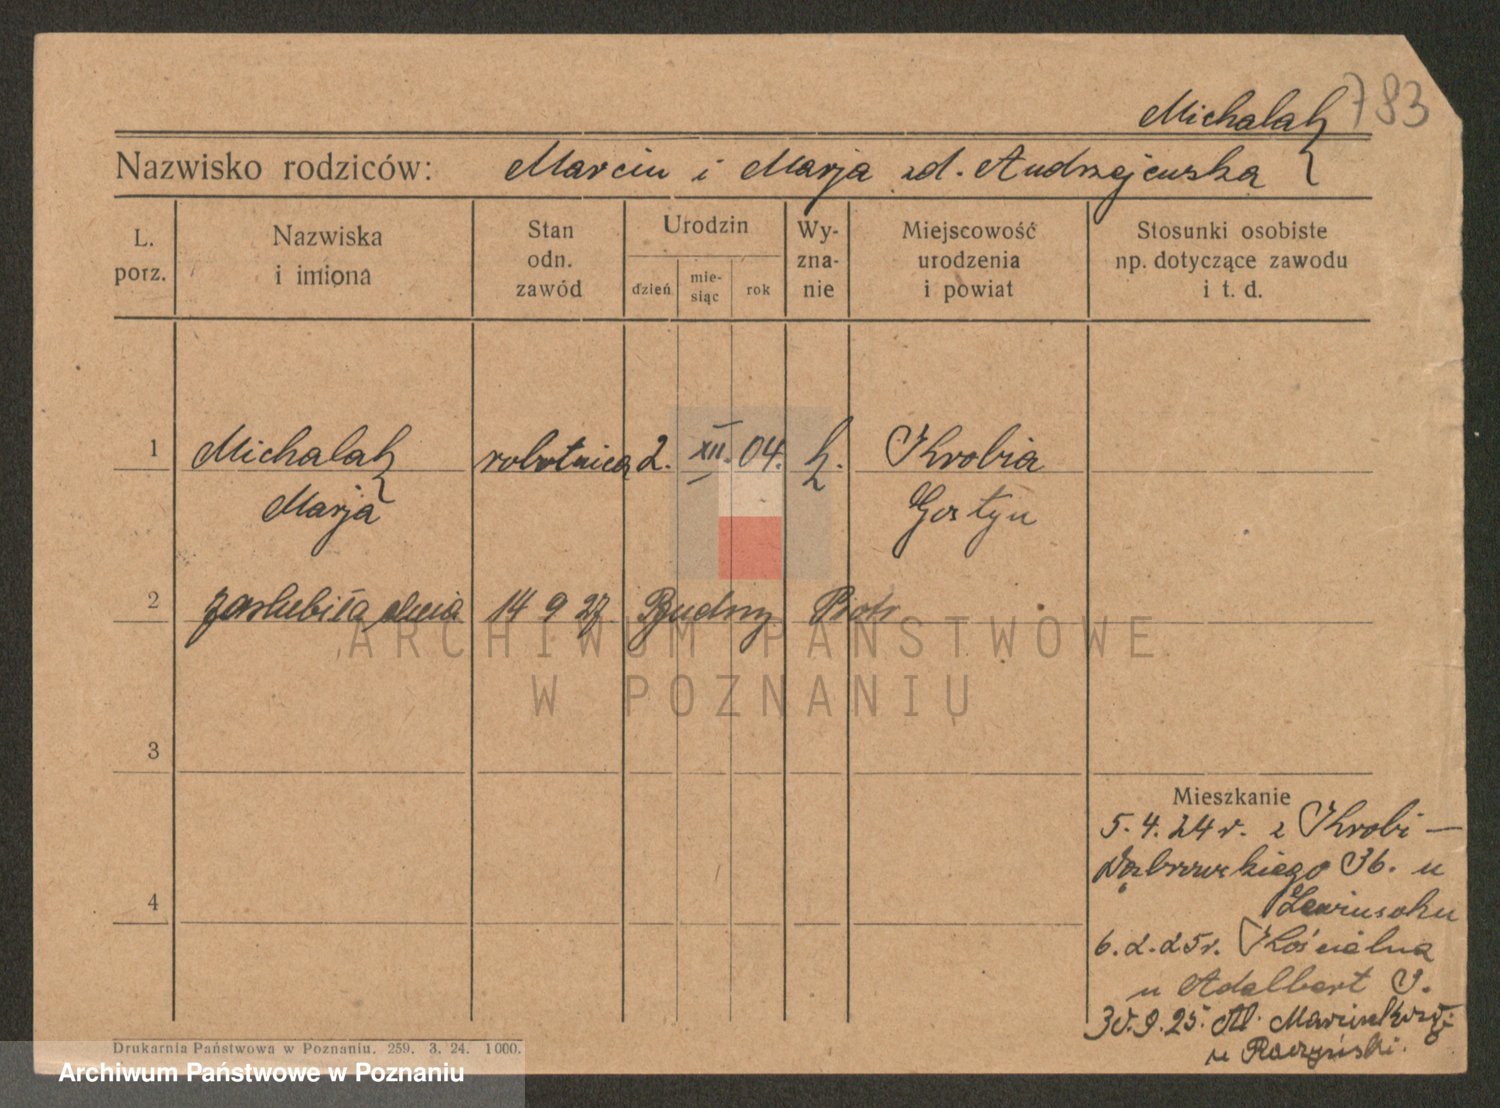 783
Michalak
Nazwisko rodziców: Marcin i Marja zd. Andrzejewska
L. porz.
Nazwiska i imiona
Stan odn. zawód
Urodzin
dzień
mie-siąc
rok
Wy-zna-nie
Miejscowość urodzenia i powiat
Stosunki osobiste np. dotyczące zawodu i t. d.
1 Michalak robotnica 2. XII. 04. k. Krobia
Marja Gostyn
2 zaślubiła dnia 14 9 27 Budny Piotr
3
4
Mieszkanie
5. 4. 24 r. z Krobi –
Dąbrowskiego 36. u
6. 2. 25 r. Kościelna
u Adalbert 9.
30. 9. 25. Al. Marcinkowski
u Raczyński.
Drukarnia Państwowa w Poznaniu. 259. 3. 24. 1000.
ARCHIWUM PAŃSTWOWE
W POZNANIU
Archiwum Państwowe w Poznaniu